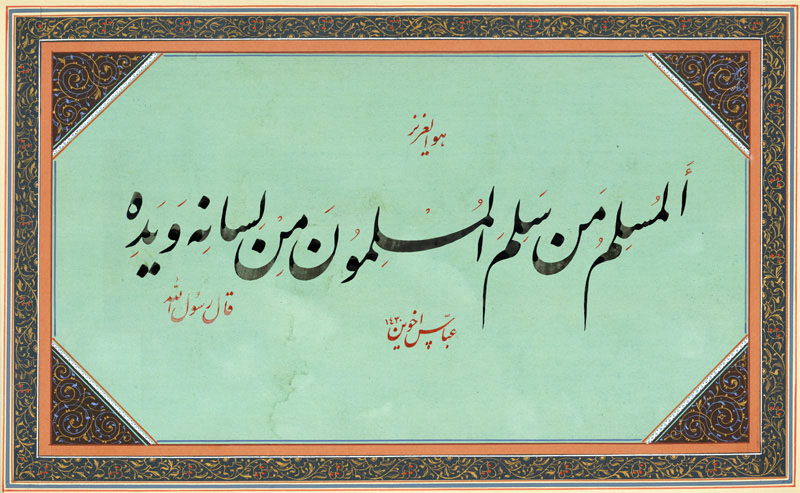 هو العزیز
أَلمُسلِمُ مَن سَلِمَ المُسْلِمُونَ مِنْ لِسانِه وَیَدِه
قال رسول الله
عباس اخوین ۱۴۲۰